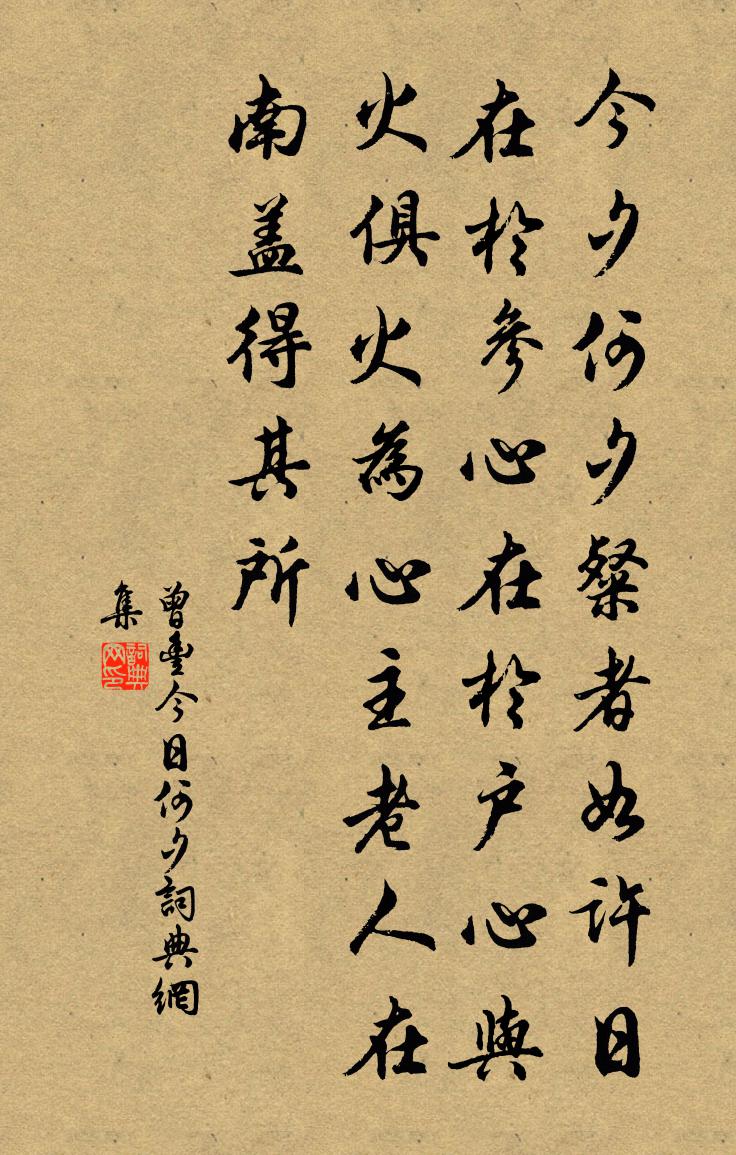 今夕何夕粲者如許日
在於參心在於戶心與
火俱火為心主老人在
南盖得其所
曾豊今日何夕詞典網
集
詞典
网印